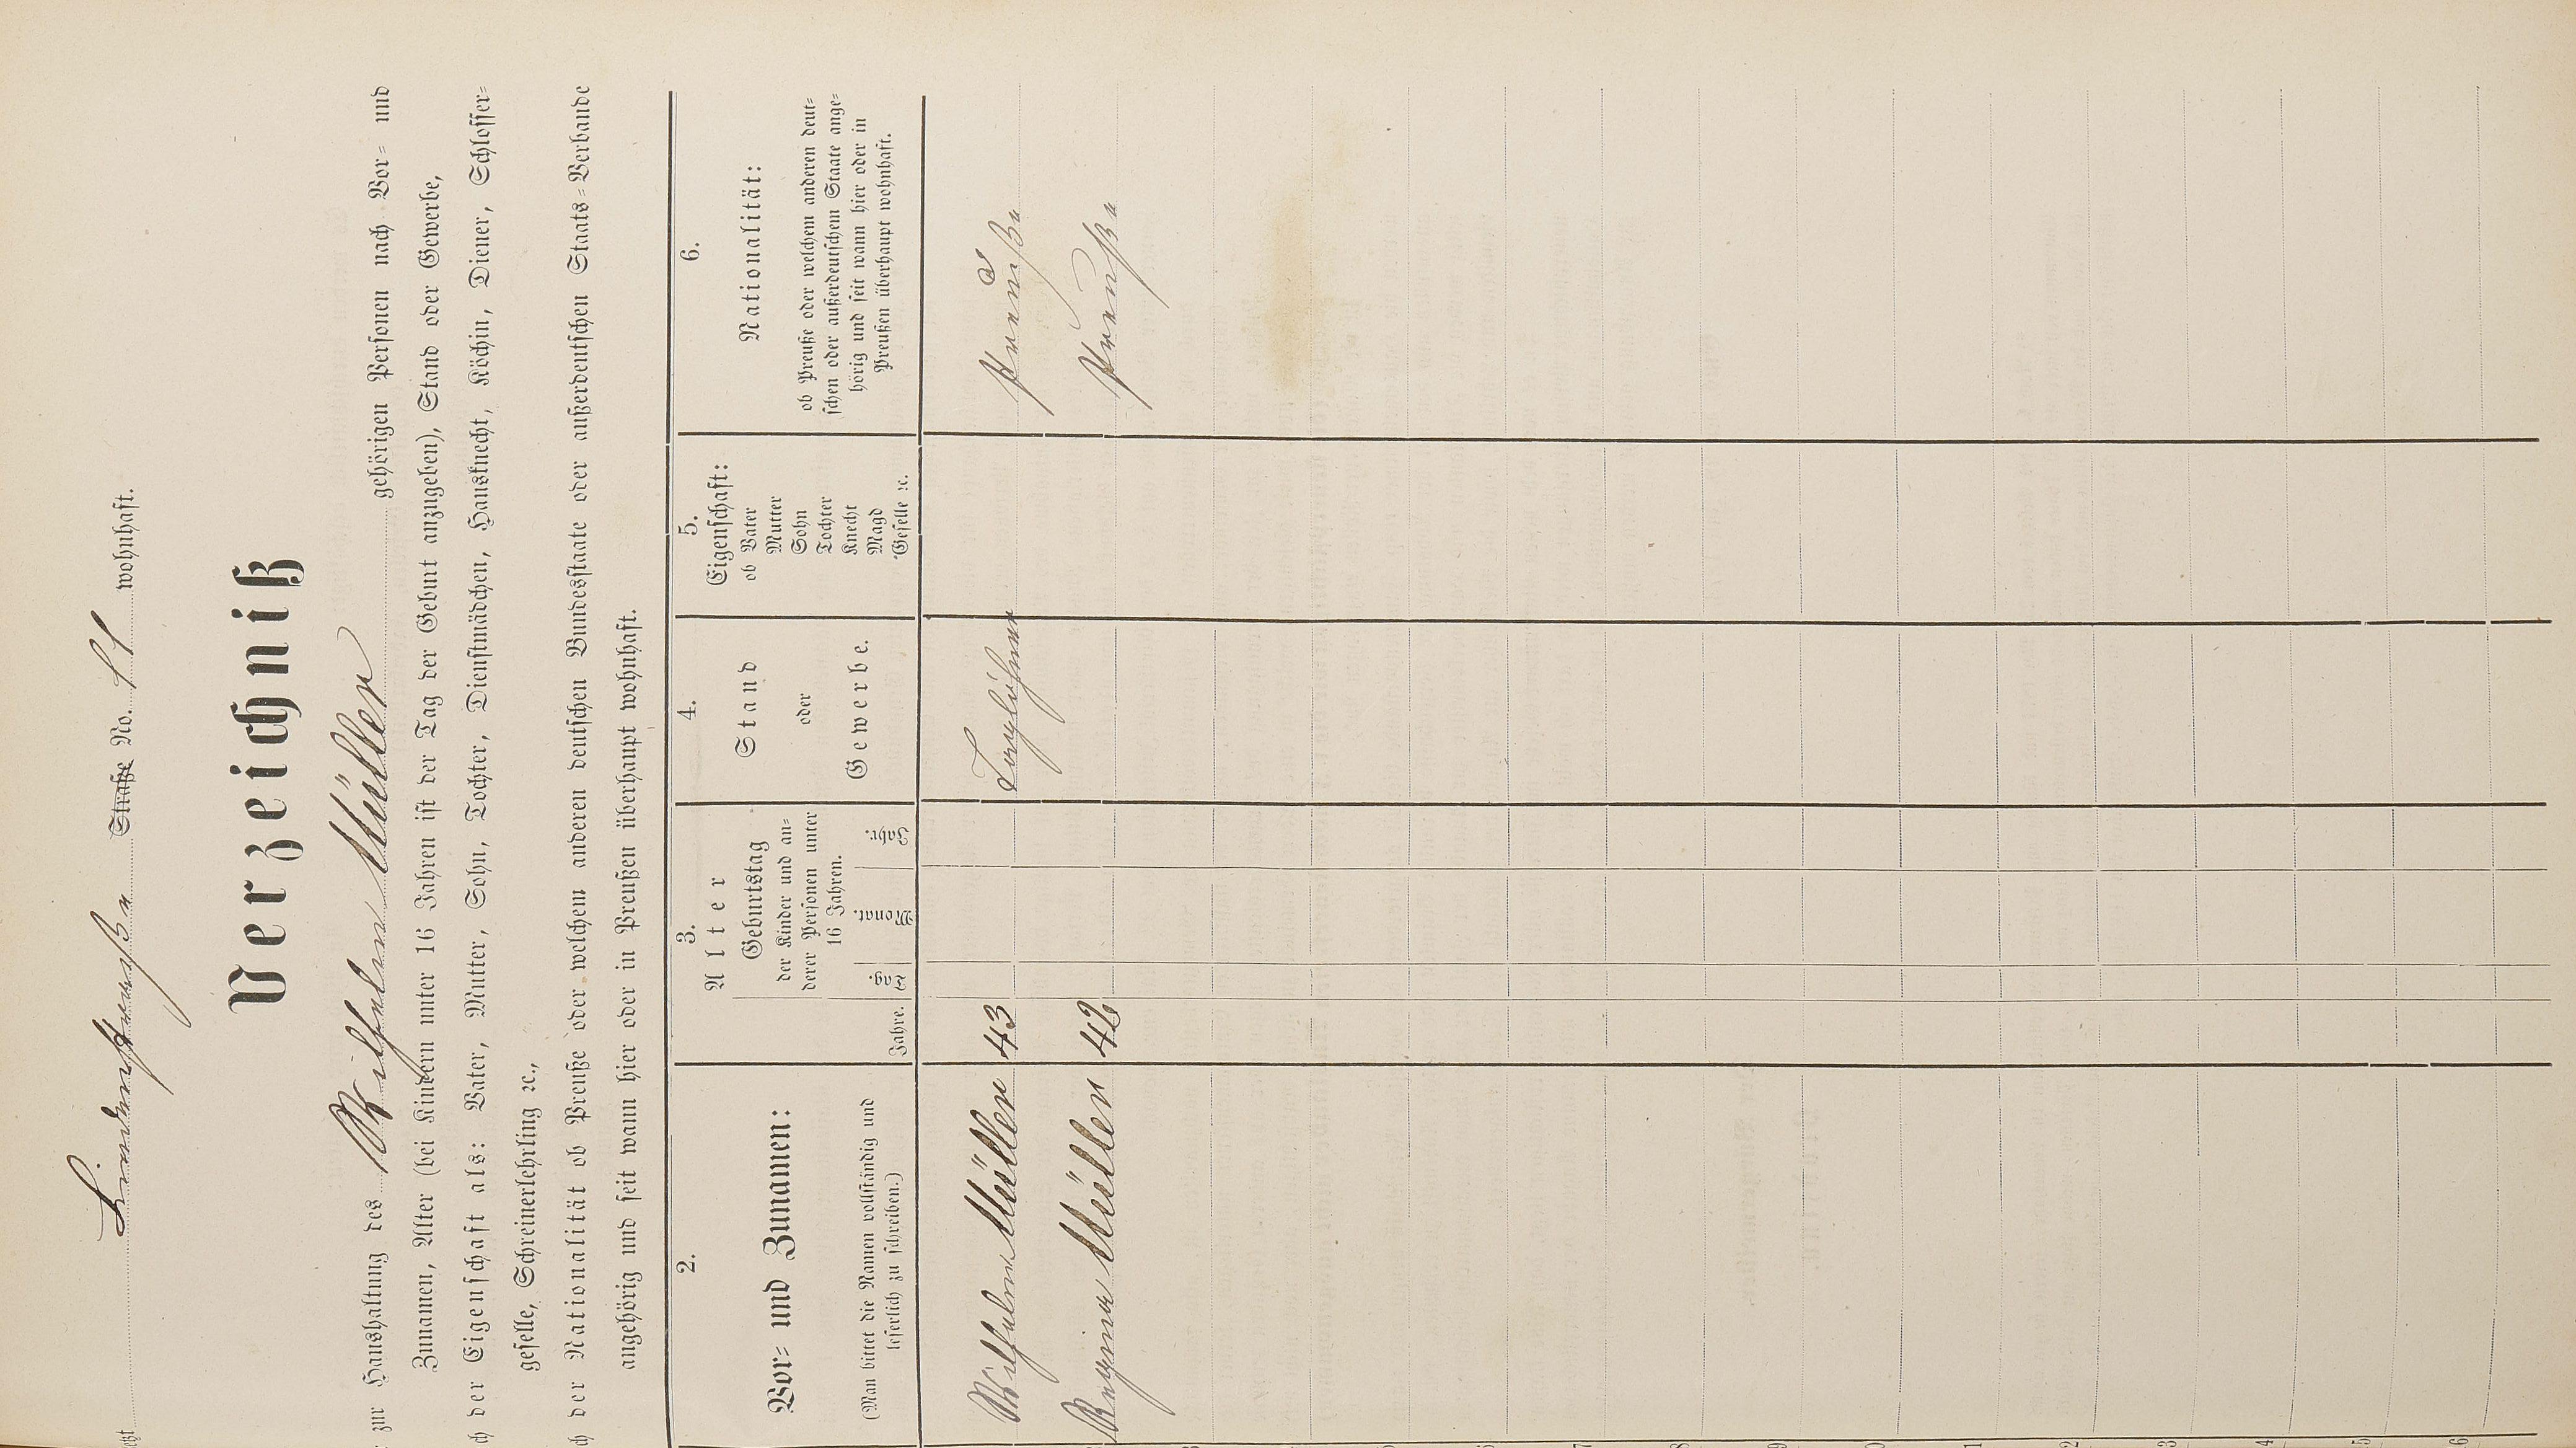 Lindenstraße Straße No. 11 wohnhaft.
Verzeichniß
zur Haushaltung des Wilhelm Müller gehörigen Personen nach Vor- und
Zunamen, Alter (bei Kindern unter 16 Jahren ist der Tag der Geburt anzugeben), Stand oder Gewerbe,
der Eigenschaft als: Vater, Mutter, Sohn, Tochter, Dienstmädchen, Hausknecht, Köchin, Diener, Schlosser-
geselle, Schreinerlehrling ꝛc.,
der Nationalität ob Preuße oder welchem anderen deutschen Bundesstaate oder außerdeutschen Staats-Verbande
angehörig und seit wann hier oder in Preußen überhaupt wohnhaft.
2.
Vor- und Zunamen:
(Man bittet die Namen vollständig und
leserlich zu schreiben.)
3.
Alter
Jahre.
Geburtstag
der Kinder und an-
derer Personen unter
16 Jahren.
Tag. Monat. Jahr.
4.
Stand
oder
Gewerbe.
5.
Eigenschaft:
ob Vater
Mutter
Sohn
Tochter
Knecht
Magd
Geselle ꝛc.
6.
Nationalität:
ob Preuße oder welchem anderen deut-
schen oder außerdeutschem Staate ange-
hörig und seit wann hier oder in
Preußen überhaupt wohnhaft.
Wilhelm Müller 43 Taglöhner Preuße
Regina Müller 42 Preuße